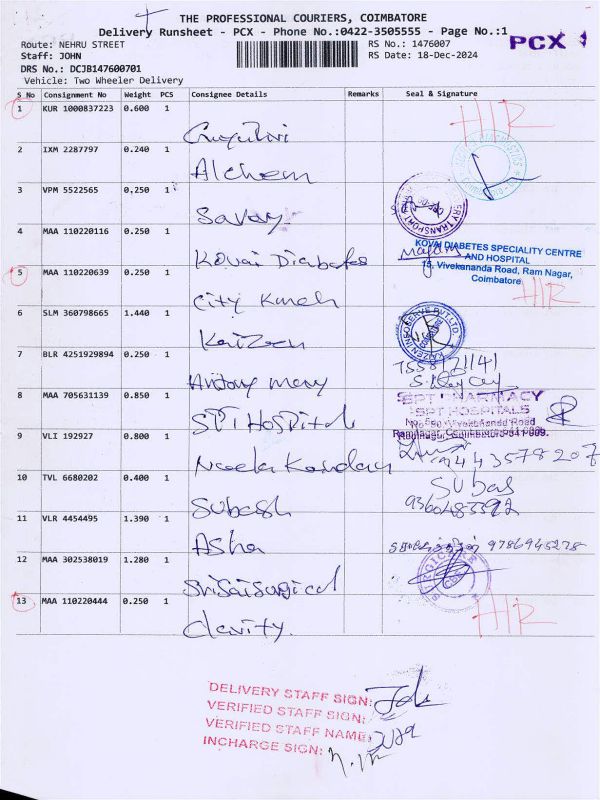 THE PROFESSIONAL COURIERS, COIMBATORE
Delivery Runsheet - PCX - Phone No.:0422-3505555 - Page No.:1
Route: NEHRU STREET RS No.: 1476007 PCX 1
Staff: JOHN RS Date: 18-Dec-2024
DRS No.: DCJB147600701
Vehicle: Two Wheeler Delivery
S No Consignment No Weight PCS Consignee Details Remarks Seal & Signature
1 KUR 1000837223 0.600 1 HIR
2 IXM 2287797 0.240 1 Alchem
3 VPM 5522565 0,250 1 Savay
4 MAA 110220116 0.250 1 Kovai Diabetes
KOVAI DIABETES SPECIALITY CENTRE
AND HOSPITAL
15, Vivekananda Road, Ram Nagar,
Coimbatore
5 MAA 110220639 0.250 1 City HIR
6 SLM 360798665 1.440 1 Kaizen KAIZEN INFOSERVE PVT LTD
7 BLR 4251929894 0.250 1 Antony mery
8 MAA 705631139 0.850 1 SPT Hospitals
SPT PHARMACY
SPT HOSPITALS
9 VLI 192927 0.800 1 Neela Kandan 9443578207
10 TVL 6680202 0.400 1 Subash Subas
11 VLR 4454495 1.390 1 Asha 9786945278
12 MAA 302538019 1.280 1 Srisaisurgical
13 MAA 110220444 0.250 1 Clarity. HIR
DELIVERY STAFF SIGN:
VERIFIED STAFF SIGN:
VERIFIED STAFF NAME:
INCHARGE SIGN: